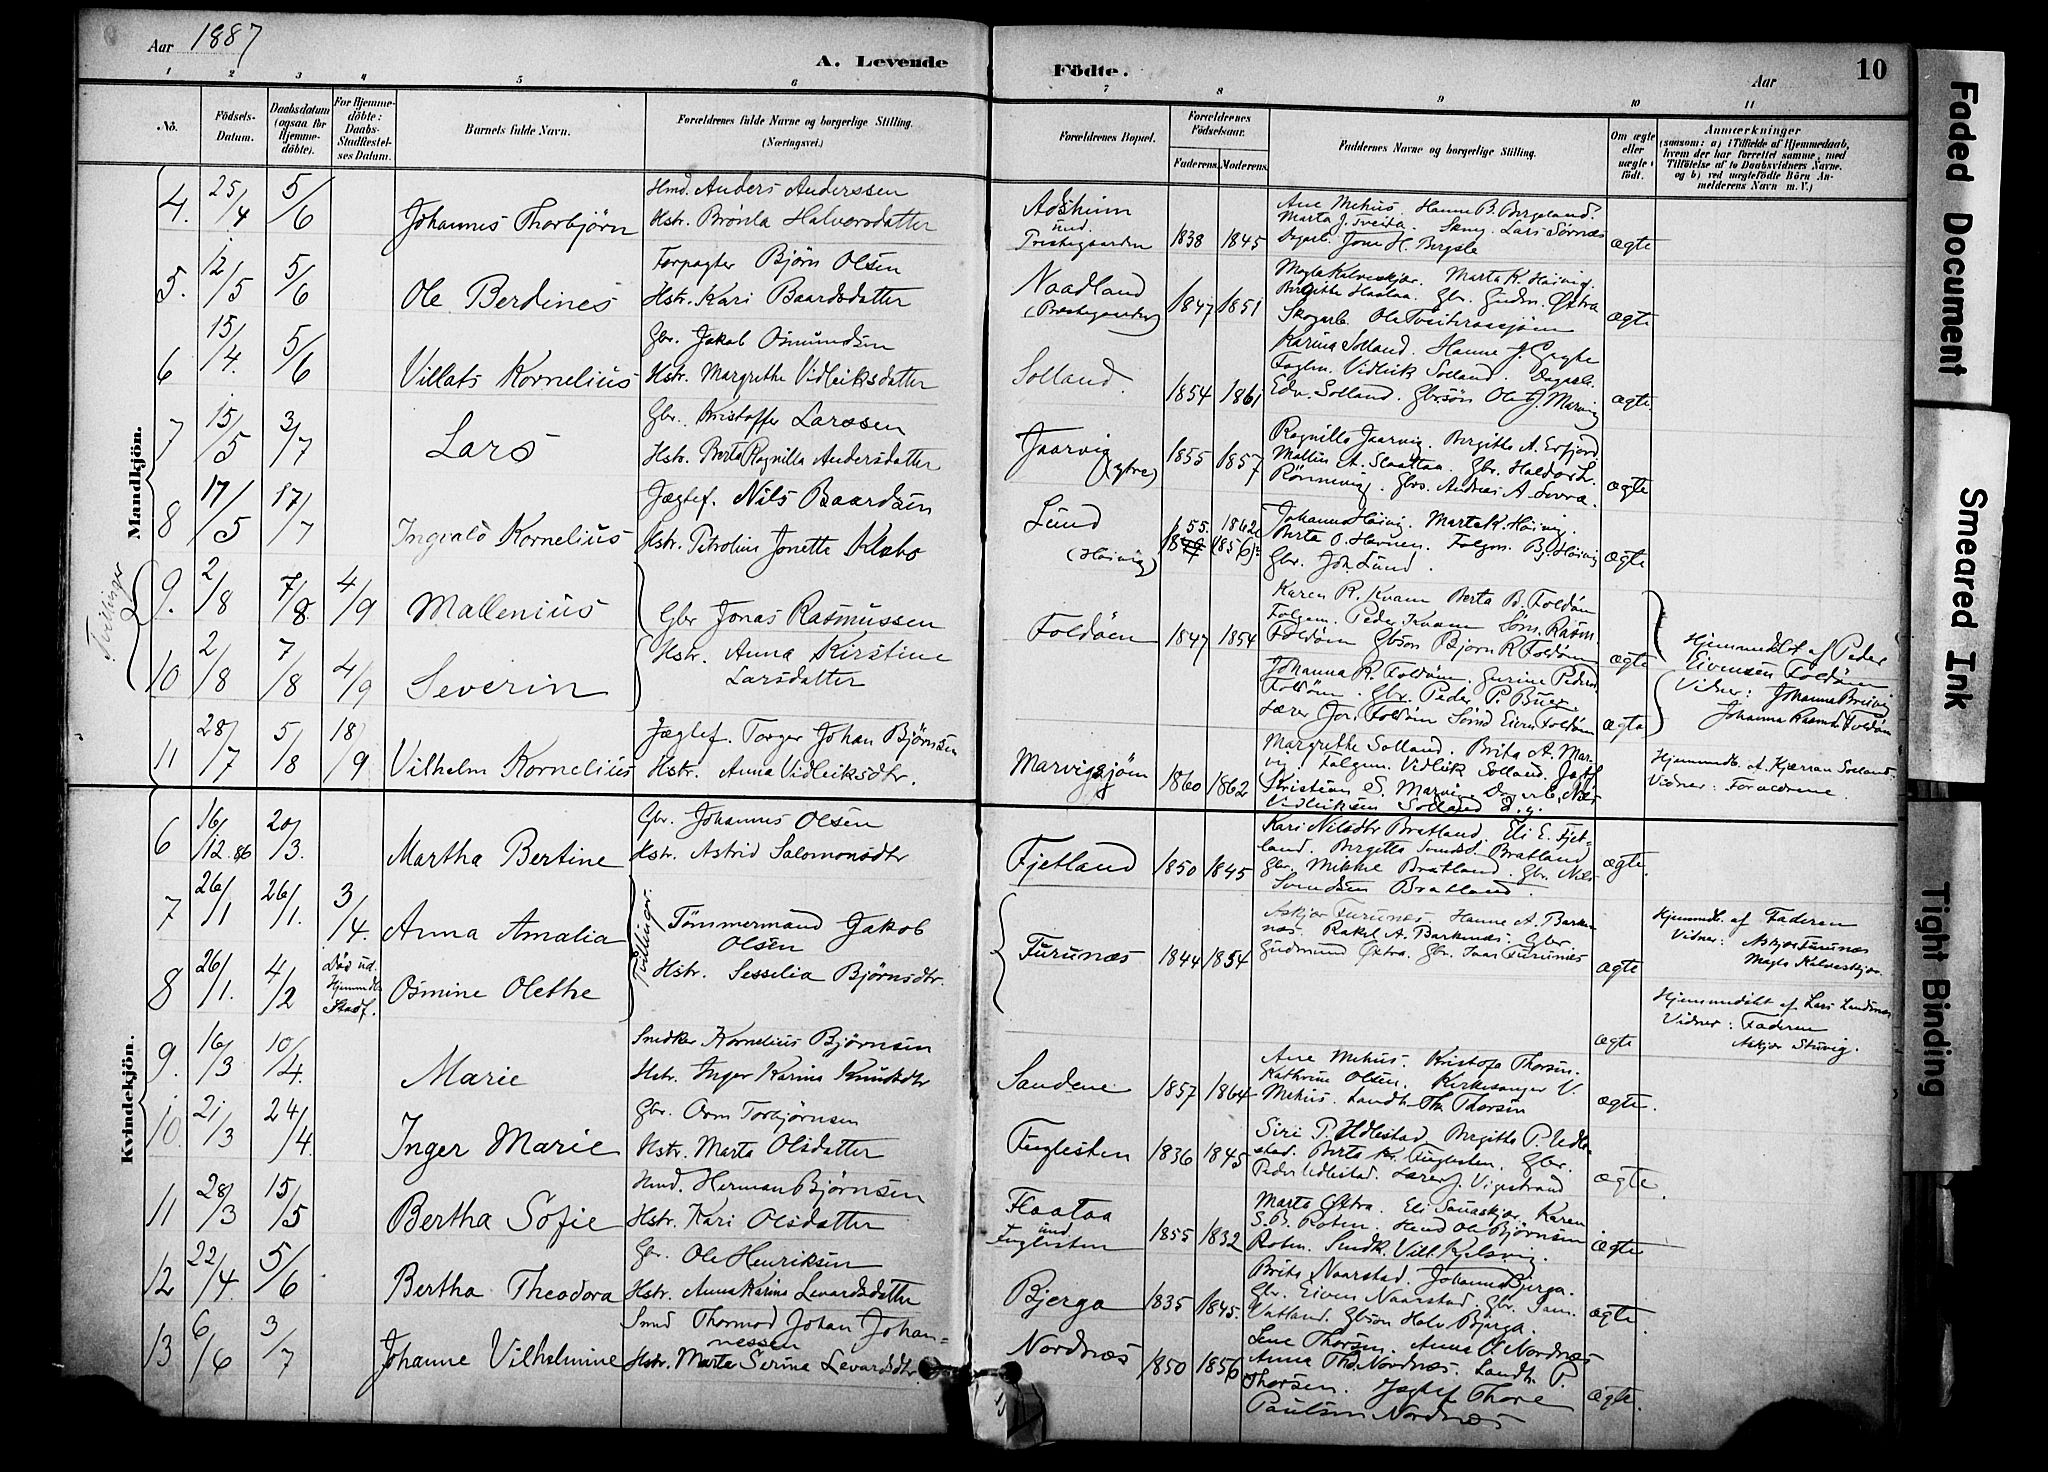 Aar 1887
A. Levende
Födte.
Aar
10
1 2 3 4 5 6 7 8 9 10 11
No.
Födsels-Datum.
Daabsdatum (ogsaa for Hjemme-döbte).
For Hjemme-döbte: Daabs-Stadfæstel-ses Datum.
Barnets fulde Navn.
Forældrenes fulde Navne og borgerlige Stilling.
(Næringsvei.)
Forældrenes Bopæl.
Forældrenes Födselsaar.
Faderens. Moderens.
Faddernes Navne og borgerlige Stilling.
Om ægte eller uægte födt.
Anmærkninger
(saasom: a) i Tilfælde af Hjemmedaab,
hvem der har forrettet samme, med
Tilföielse af to Daabsvidners Navne.
og b) ved uægtefödte Börn An-
melderens Navn m. V.)
Mandkjön.
4. 25/4 5/6 Johannes Thorbjörn
Hmd. Anders Anderssen
Hstr. Brönla Halversdatter
und. Prestegaarden 1838 1845
Ane Mehus. Hanne B. Bergeland.
Marta J. Tveita. Lars Sörnæs
Dagarb. Jone H. Bergsle
ægte
5. 12/5 5/6 Ole Berdines
Forpagter Björn Olsen
Hstr. Kari Baardsdatter
Naadland
(Prestegaarden) 1847 1851
Magla Kalveskjær. Marta K. Höivig.
Birgitte Haataa. Gbr. Gudm. Östra
Skogarb. Ole
ægte
6 15/4. 5/6 Villats Kornelius
Gbr. Jakob Osmundsen
Hstr. Margrethe Vidleiksdatter
Solland. 1854 1861
Karina Solland. Hanne J.
Folgm. Vidleik Solland. Dagarb.
Edv. Solland. Gbrsön Ole J. Marvig
ægte.
7 15/5 3/7 Lars
Gbr. Kristoffer Larssen
Hstr. Berta Ragnilla Andersdatter
Jaarvig
(ytre) 1855 1857
Ragnilla Jaarvig. Birgitte A. Erfjord.
Mallin A. Slaattaa. Gbr. Haldor L.
Rönnevig. Gbrs. Andreas A.
ægte
8 17/5 17/7 Ingvald Kornelius
Jægtef. Nils Baardsen
Hstr. Petroline Jonetta Klebo
Lund
(Höivig) 55 1862
(1856)
Johanne Höivig. Marta K. Höivig.
Berta O. Folgm. B. Höivig
Gbr. Joh. Lund.
ægte
Tvillinger
9. 2/8 7/8. 4/9 Mallenius
Gbr Jonas Rasmussen
Hstr. Anna Kirstine
Larsdatter
Foldöen 1847 1854
Karen R. Kvam Berta B. Foldöen
Folgem. Peder Kvam Rasm.
Foldöen Gbsön Bjorn R. Foldöen
ægte
10 2/8 7/8 4/9 Severin
Johanna R. Foldöen. Gurine Peders
Foldöen. Gbr. Peder P. Buer.
Lærer Jon. Foldöen Eiven Foldöen
ægte
Hjemmedöbt af Peder
Eivensen Foldöen
Vidner: Johanna
Johanna Rasmd. Foldöen
11 28/7 5/8 18/9 Vilhelm Kornelius
Jægtef. Torger Johan Björnsen
Hstr. Anna Vidleiksdtr.
Marvigsjöen 1860 1862
Margrethe Solland. Brita A. Mar-
vig. Folgem. Vidleik Solland. Jægtf
Kristian S. Marvig. Dagarb. Nils
Vidleiksen Solland
Hjemmedb. af Kjærran Solland.
Vidner: Forældrene.
Kvindekjön.
6 16/12. 86 20/3. Martha Bertine
Gbr. Johannes Olsen
Hstr. Astrid Salomonsdtr
Fjetland 1850 1845
Kari Nilsdtr Bratland. Eli E. Fjet-
land. Birgitta Bratland
Gbr. Mikkel Bratland. Gbr. Nils
Svendsen Bratland.
ægte.
7 26/1 26/1. 3/4. Anna Amalia
Tvillinger.
Tömmermand Jakob
Olsen
Hstr. Sesselia Björnsdtr.
Furunæs 1844 1854
Askjær Furunæs. Hanne A. Barke-
næs. Rakel A. Barkenæs. Gbr.
Gudmund Östra. Gbr. Furunæs
ægte
Hjemmedb. af Faderen
Vidner: Askjær Furunæs
Magla Kalveskjær.
8 26/1. 4/2 Död ud.
Hjemmedb.
Stadf. Osmine Olethe
ægte
Hjemmedöbt af Lars Sandnæs
Vidner: Faderen
Askjær Stuvig.
9. 16/3 10/4. Marie
Snedker Kornelius Björnsen
Hstr. Inger Karine Knutsdtr
Sandene 1857 1864
Ane Mehus. Kristofa Thorsen.
Kathrine Olsen. Kirkesanger V.
Mehus. Landh. Th. Thorsen
ægte.
10. 21/3 24/4. Inger Marie
Gbr. Orm Torbjörnsen
Hstr. Marta Olsdatter
Fuglesten 1836 1845
Siri P. Udlestad. Birgitte P. Udle-
stad. Berta K. Fuglesten. Gbr.
Peder Udlestad. Lærer J. Vigestrand
ægte.
11 28/3 15/5 Bertha Sofie
Hmd. Herman Björnsen
Hstr. Kari Olsdatter
Flaataa
und
Fuglesten 1855 1832
Marta Östra. Eli Sauaskjær. Karen
S. B. Roten. Hmd Ole Björnsen
Roten. Snedk. Vill. Kjelsvig.
ægte
12 22/4. 5/6 Bertha Theodora
Gbr. Ole Henriksen
Hstr. Anna Karine Levardsdatter
Bjerga 1835 1845.
Brita Naarstad. Johanna Bjerga.
Gbr. Eiven Naarstad. Gbr.
Vatland. Gbsön Halv. Bjerga.
ægte.
13 6/6 3/7 Johanne Vilhelmine
Smed Thormod Johan Johan-
nessen
Hstr. Marta Serina Levardsdtr.
Nordnæs 1850 1856
Lene Thorsen. Anna O. Nordnæs
Anna Th. Nordnæs. Landh. P.
Thorsen. Jægtef Thore
Paulsen Nordnæs
ægte.
Faded Document
Smeared Ink
Tight Binding